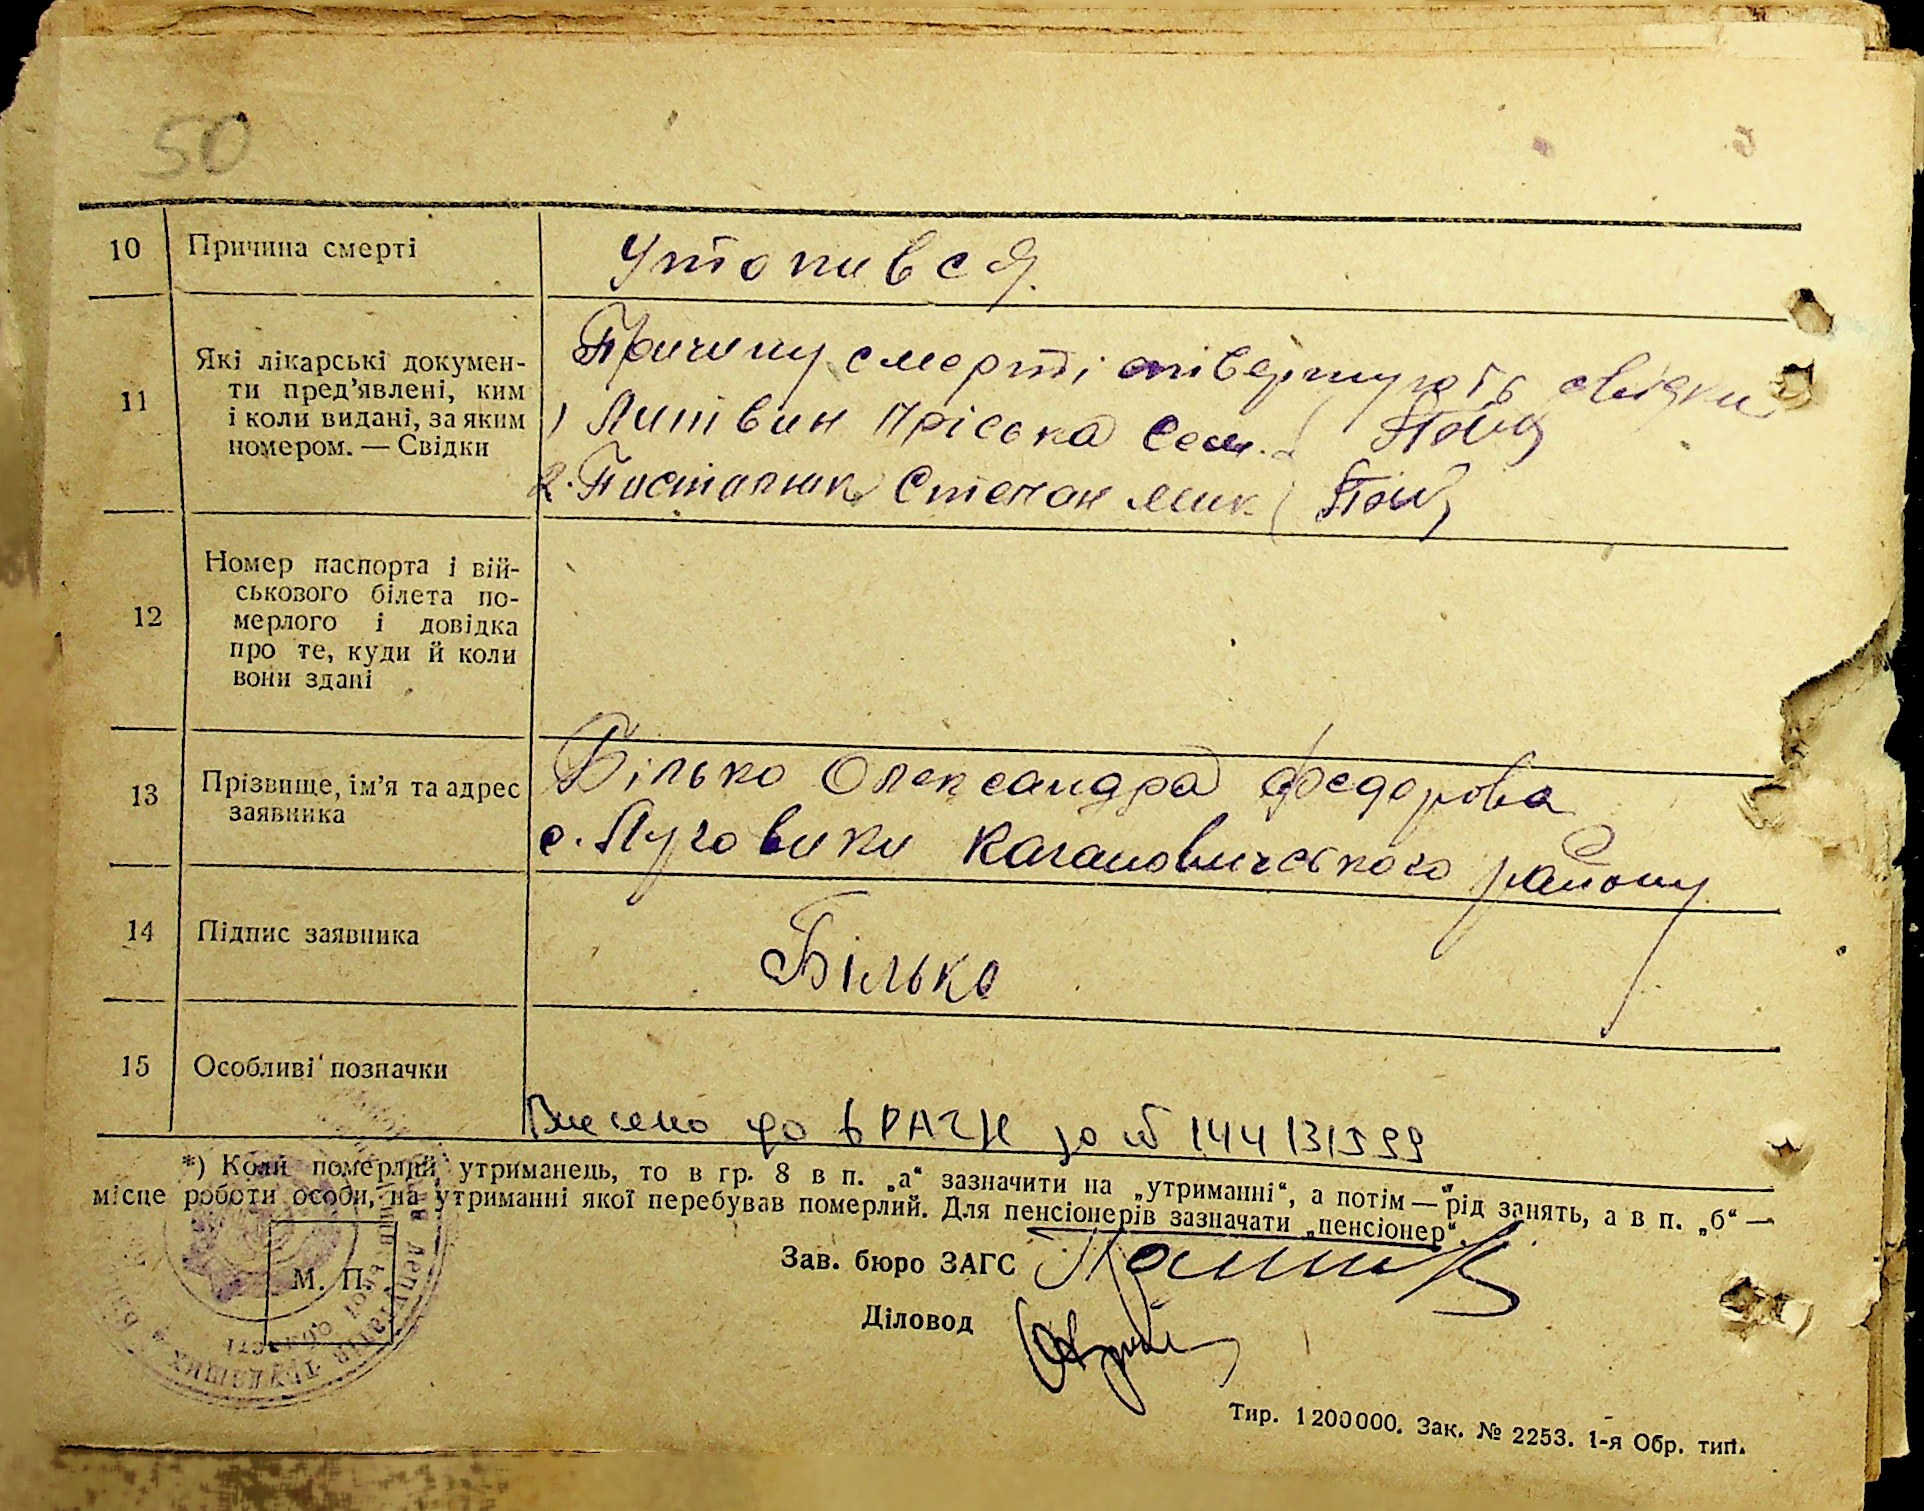 50
10 Причина смерті Утопився.
11 Які лікарські докумен-
ти пред'явлені, ким
і коли видані, за яким
номером. — Свідки
Причину смерті стверджують свідки
1) Литвин Пріська Сем. (
2. Степан Мик (
12 Номер паспорта і вій-
ськового білета по-
мерлого і довідка
про те, куди й коли
вони здані
13 Прізвище, ім'я та адрес
заявника
Білько Олександра Федорова
с. Луговики Кагановичського району
14 Підпис заявника Білько
15 Особливі позначки
Внесено до ДРАЦС за № 144131599
*) Коли померлий утриманець, то в гр. 8 в п. „а“ зазначити на „утриманні“, а потім — рід занять, а в п. „б“ —
місце роботи особи, на утриманні якої перебував померлий. Для пенсіонерів зазначати „пенсіонер“.
Зав. бюро ЗАГС
М. П.
Діловод
депутатів трудящих
області
Тир. 1200000. Зак. № 2253. 1-я Обр. тип.